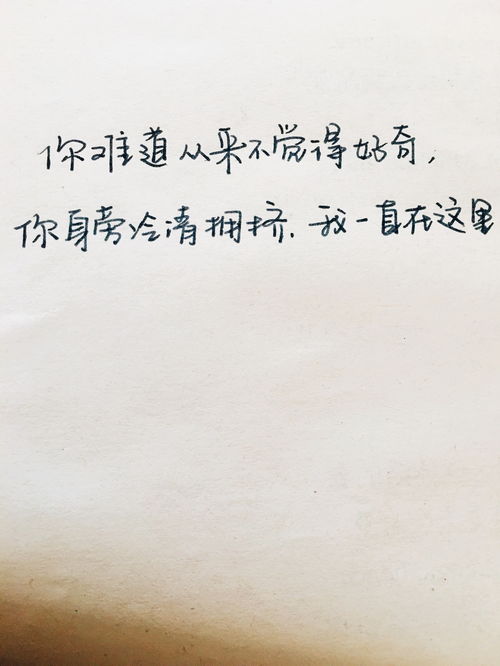 你难道从来不觉得好奇，
你身旁冷清拥挤.我一直在这里